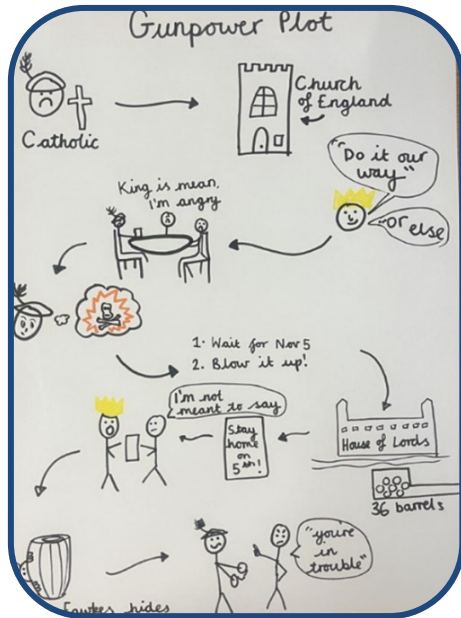 Gunpower Plot
Catholic
Church
of England
"Do it our
way"
"or
else
King is mean,
I'm angry
1. Wait for Nov 5
2. Blow it up!
I'm not
meant to say
Stay
home
on
5th!
House of Lords
36 barrels
"you're
in
trouble"
Fawkes hides